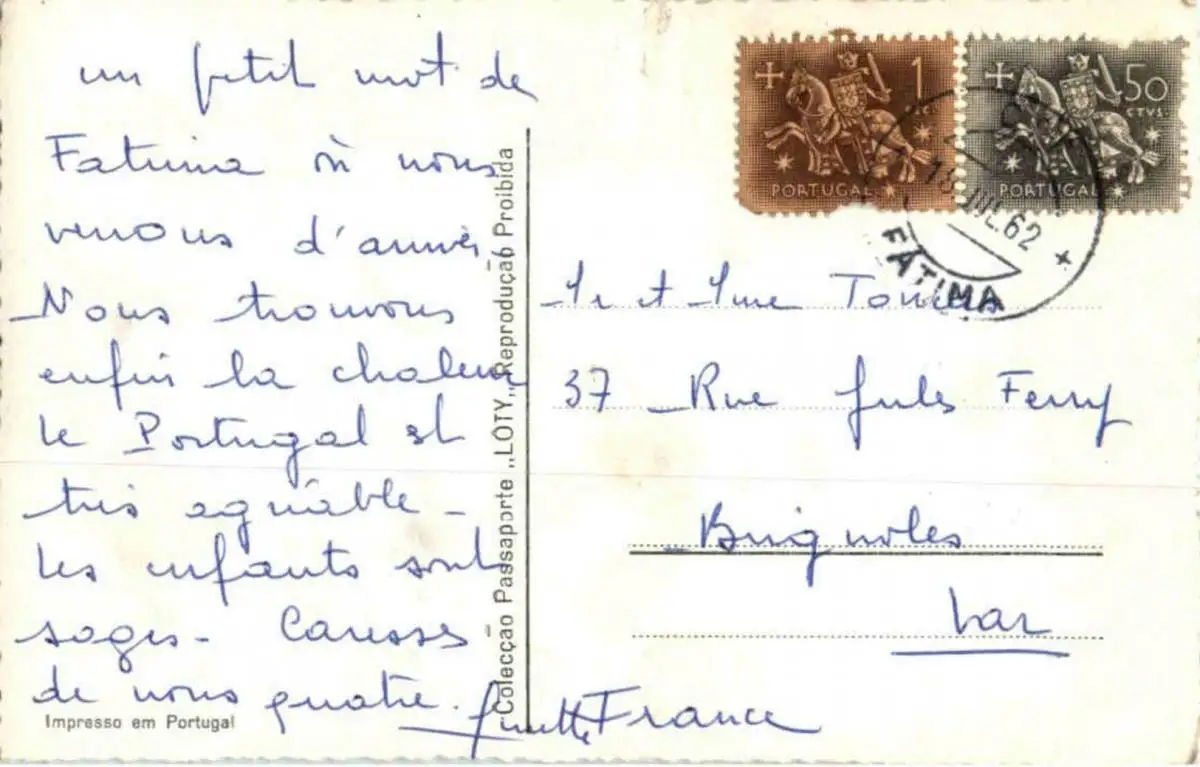 un petit mot de
Fatima où nous
venons d'arriver.
Nous trouvons
enfin la chaleur
le Portugal est
très agréable -
Les enfants sont
sages - Caresses
de nous quatre.
Ginette
Impresso em Portugal
Colecção Passaporte „LOTY„ Reprodução Proibida
1
ESC.
PORTUGAL
50
CTVS.
PORTUGAL
JUL.62
FÁTIMA
Mr et Mme
37 Rue Jules Ferry
Brignoles
Var
France